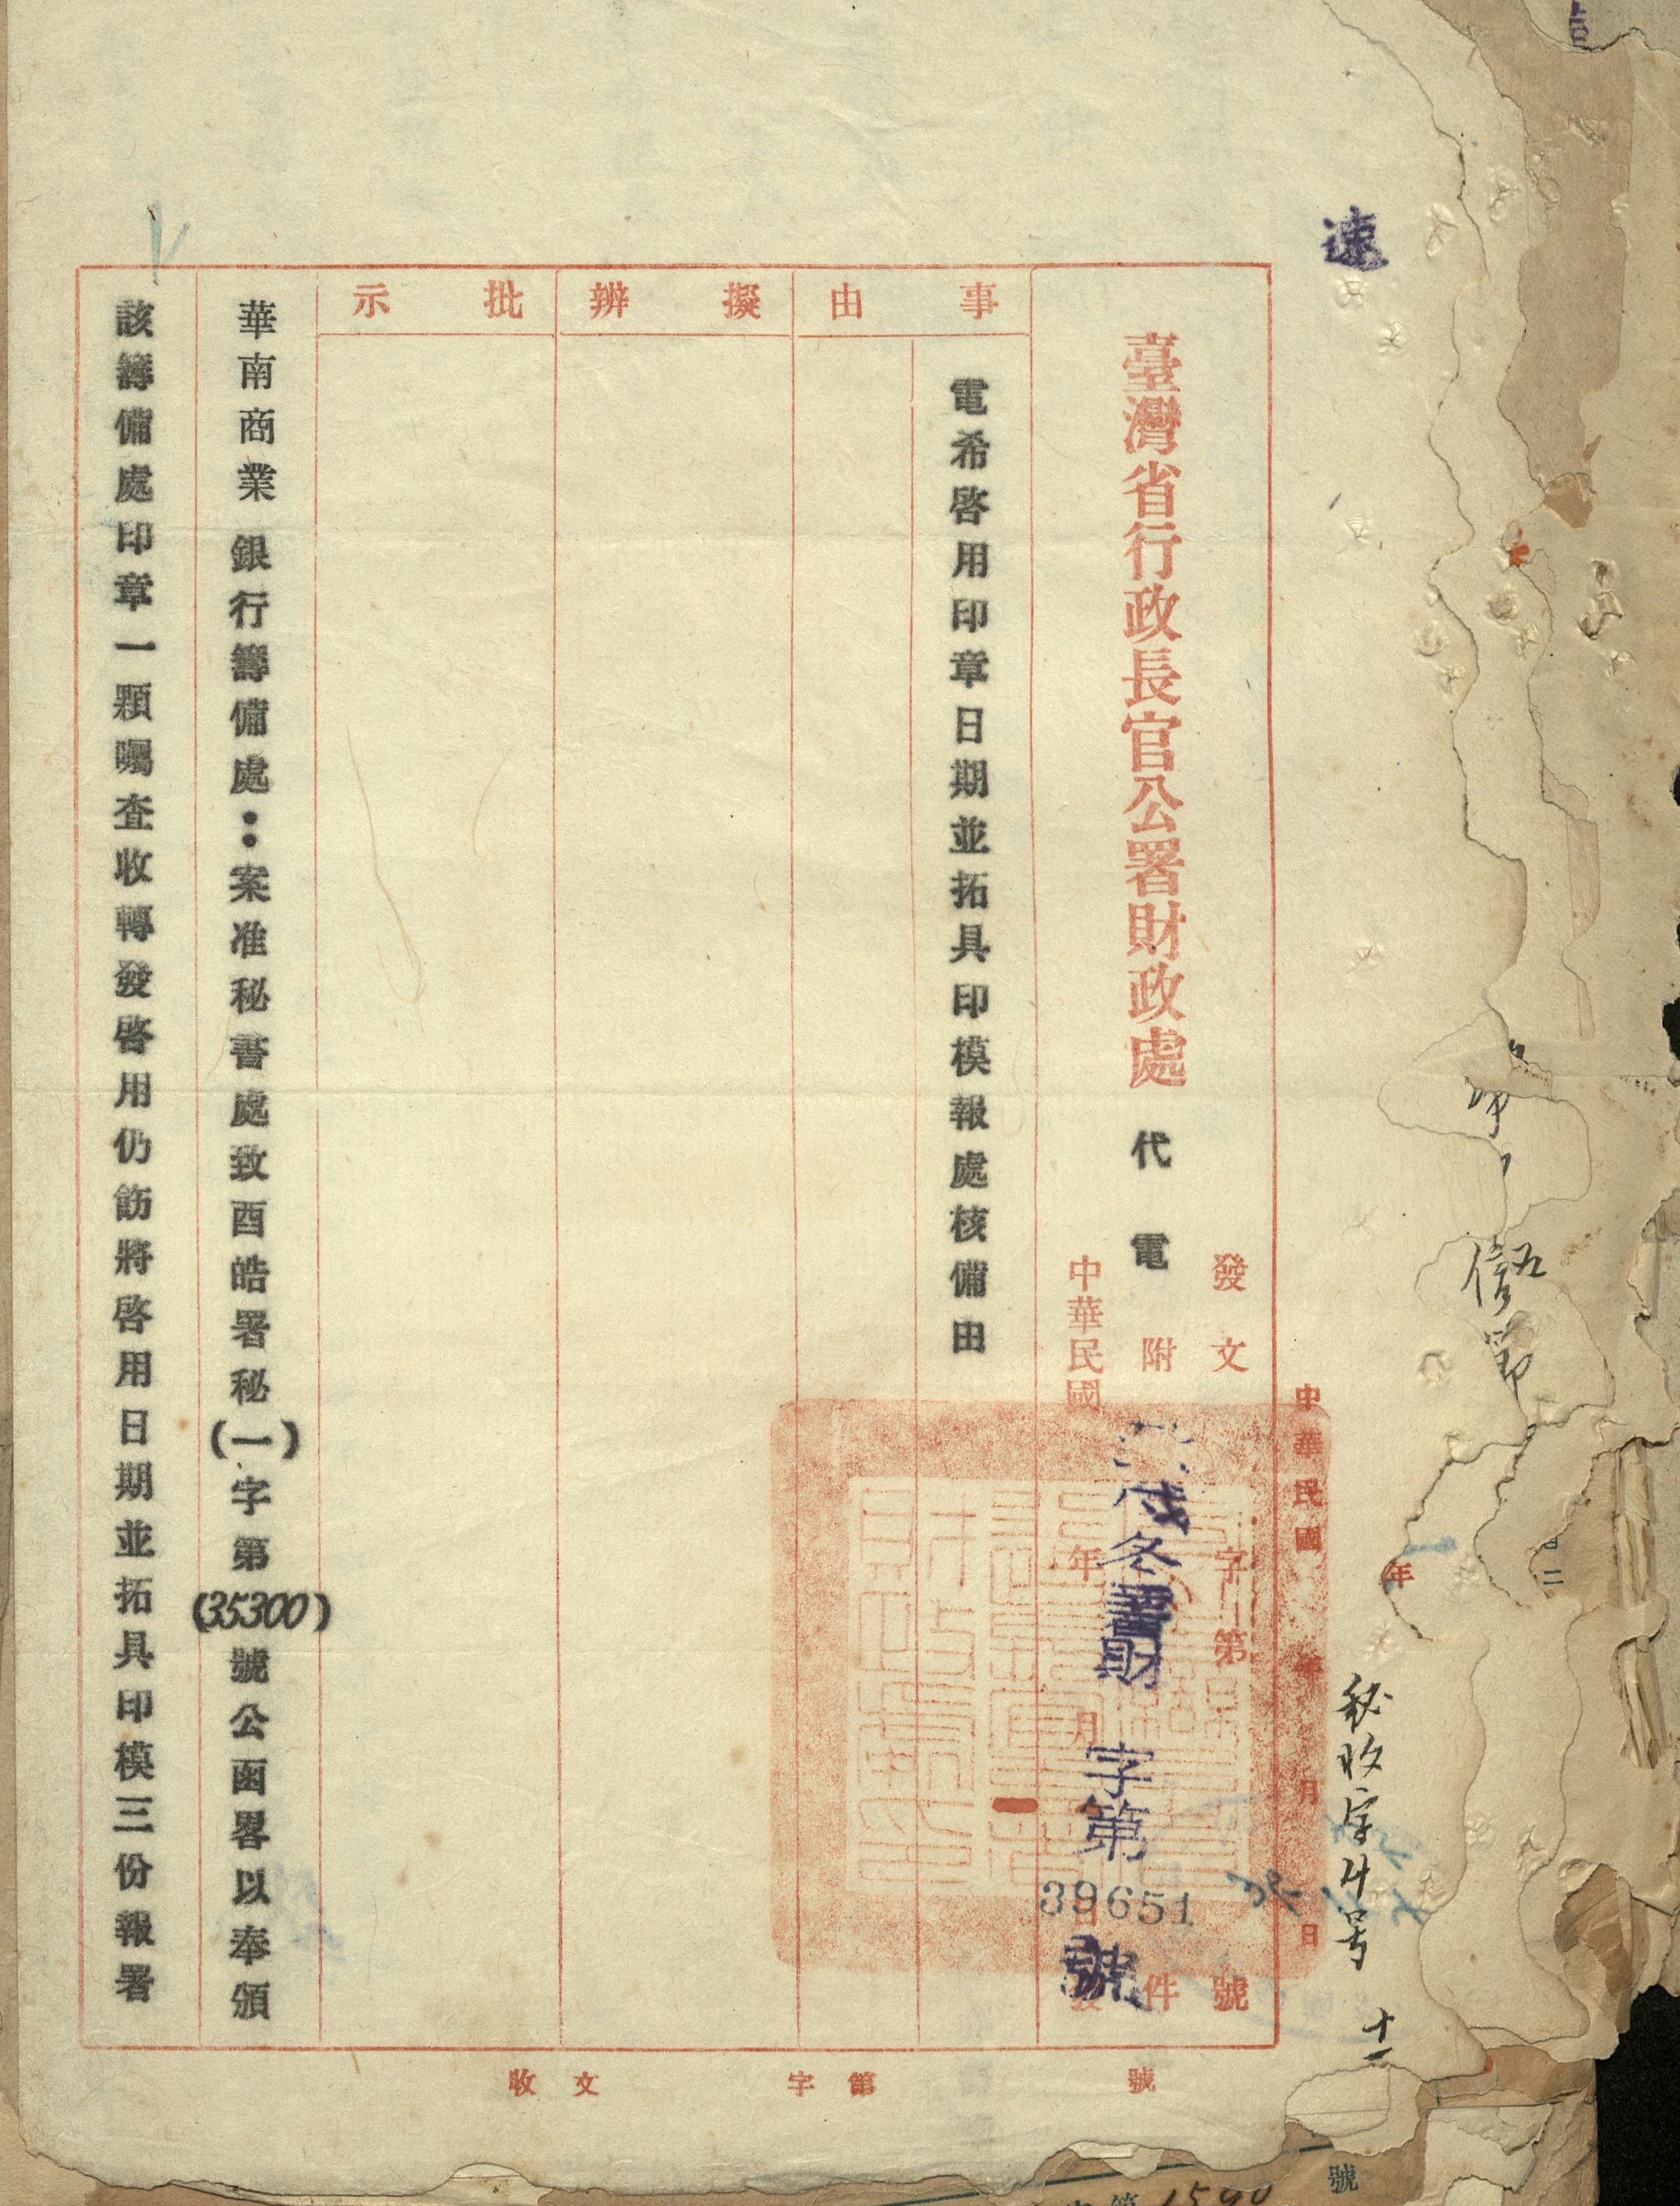 速
秘收字廿号
十一
中華民國 年 月 日
年
臺灣省行政長官公署財政處 代電
發文 字第 號
附 件
中華民國 年 月 日發
戌冬署財 字第 39651 號
事由
電希啓用印章日期並拓具印模報處核備由
擬辦
批示
華南商業銀行籌備處：案准秘書處致酉皓署秘(一)字第(35300)號公函畧以奉頒
該籌備處印章一顆囑查收轉發啓用仍飭將啓用日期並拓具印模三份報署
收文 字第 號
號